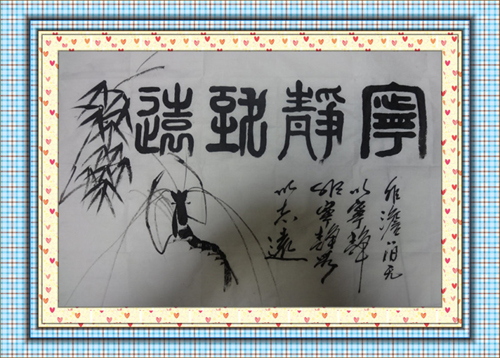 寧靜致遠
非澹泊无
以寧靜
非寧靜無
以致遠